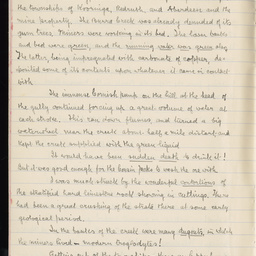 the townships of Kooringa, Redruth, and Aberdeen and the
mine property. The Burra Creek was already denuded of its
gum trees. Miners were working in its bed. The bare banks
and bed were green, and the running water was green also
the latter being impregnated with carbonate of copper, de-
posited some of its contents upon whatever it came in contact
with.
The immense Cornish pump on the hill at the head of
the gully continued forcing up a great volume of water at
each stroke. This ran down flumes, and turned a big
waterwheel near the creek about half a mile distant, and
kept the creek supplied with the green liquid
It would have been sudden death to drink it!
But it was good enough for the bosin to wash the ore with
I was much struck by the wonderful contortions of
the stratified hard limestone rock showing in cuttings, there
had been a great crushing of the strata there at some early
geological period.
In the banks of the creek were many dugouts, in which
the miners lived - modern Troglodytes!
Getting out of the